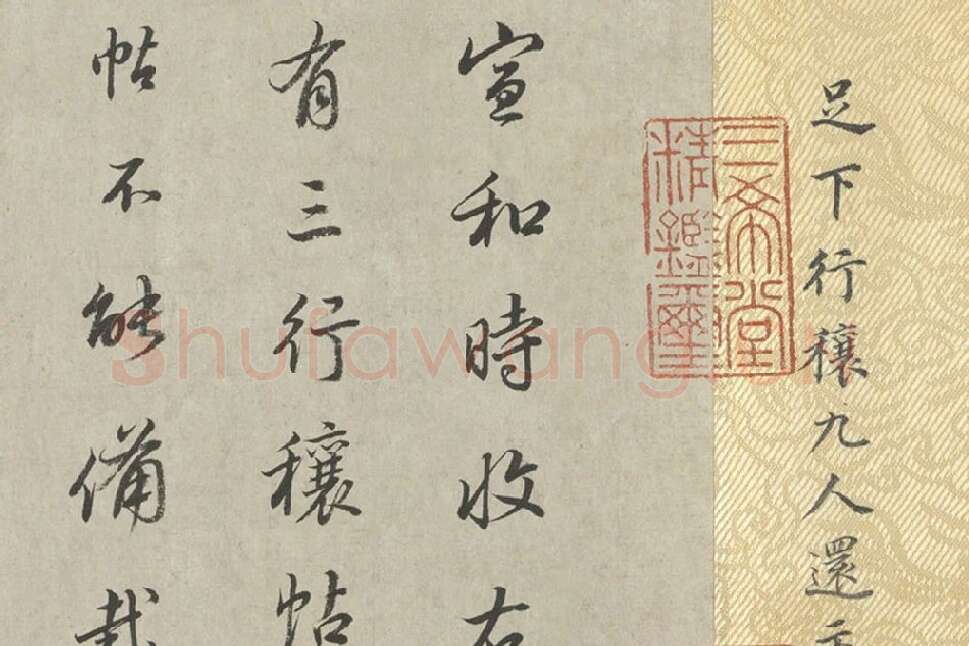 足下行穰九人還示
三希堂精鑑璽
宣和時收右
有三行穰帖
帖不能備載
shufawang.cn